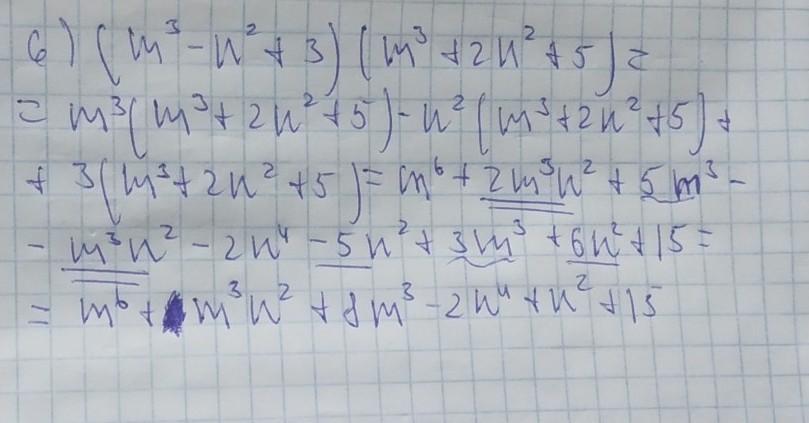 6) (m³ - n² + 3)(m³ + 2n² + 5) =
= m³(m³ + 2n² + 5) - n²(m³ + 2n² + 5) +
+ 3(m³ + 2n² + 5) = m⁶ + 2m³n² + 5m³ -
- m³n² - 2n⁴ - 5n² + 3m³ + 6n² + 15 =
= m⁶ + m³n² + 8m³ - 2n⁴ + n² + 15